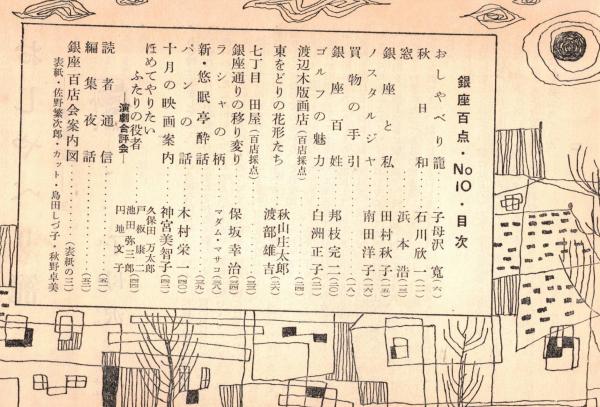 銀座百点・No10・目次
おしやべり籠 子母沢寛(六)
秋日和 石川欣一(一一)
窓 浜本浩(一三)
銀座と私 田村秋子(一五)
ノスタルジヤ 南田洋子
買物の手引(一八)
銀座百姓 邦枝完二(二〇)
ゴルフの魅力 白洲正子(二二)
渡辺木版画店(二四)
東をどりの花形たち 秋山庄太郎 渡部雄吉(二六)
七丁目 田屋(百店採点)(三三)
銀座通りの移り変り 保坂幸治
ラシヤの柄 マダム・マサコ
新・悠眠亭酔話(三九)
パンの話 木村栄一(四一)
十月の映画案内 神宮美智子(四二)
ほめてやりたい
ふたりの役者
―演劇合評会―
久保田万太郎
戸板康二
池田弥三郎
円地文子
(四四)
読者通信(五一)
編集夜話(五二)
銀座百店会案内図(表紙の二)
表紙・佐野繁次郎・カット・島田しづ子・秋野卓美